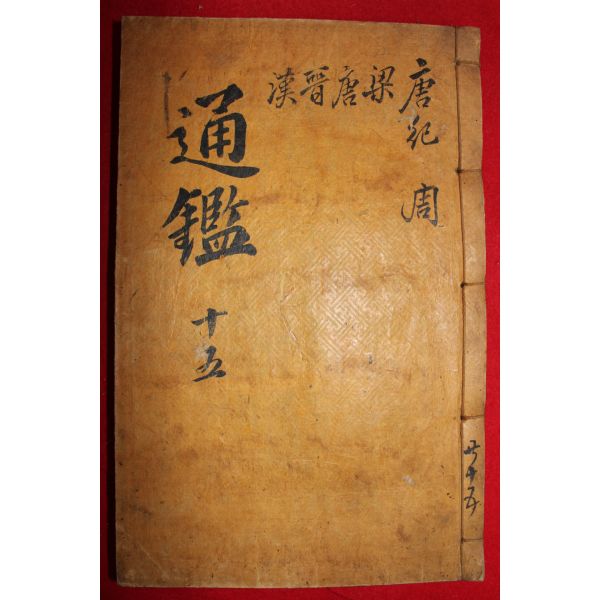 唐紀 周
梁唐晉漢
通鑑
十五
共十五